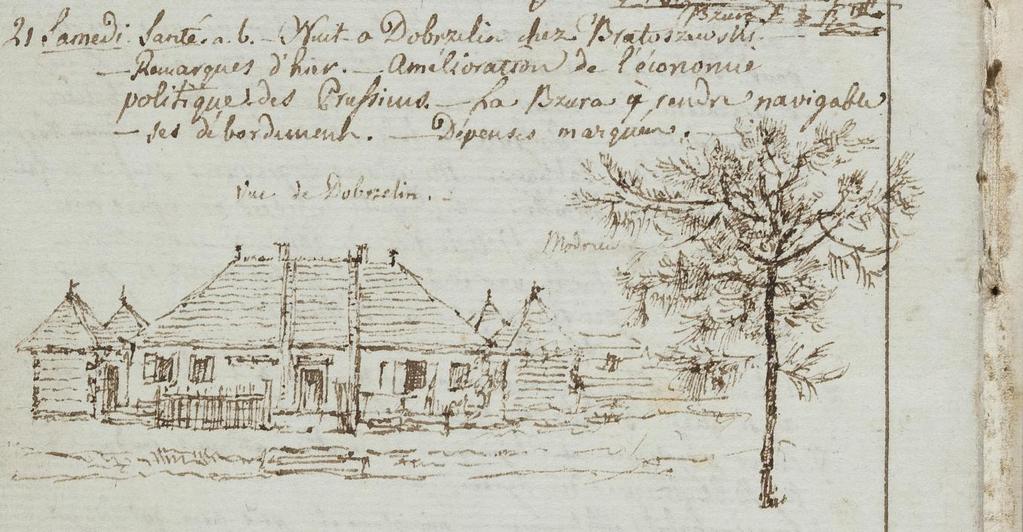 Bzura
21 Samedi. Santé. a. b. – Nuit a Dobrzelin chez Bratoszewski.
– Remarques d'hier. – Amélioration de l'économie
politique des Prussiens. – La Bzura à rendre navigable
– ses débordemens. – Dépenses marquées. –
Vue de Dobrzelin. –